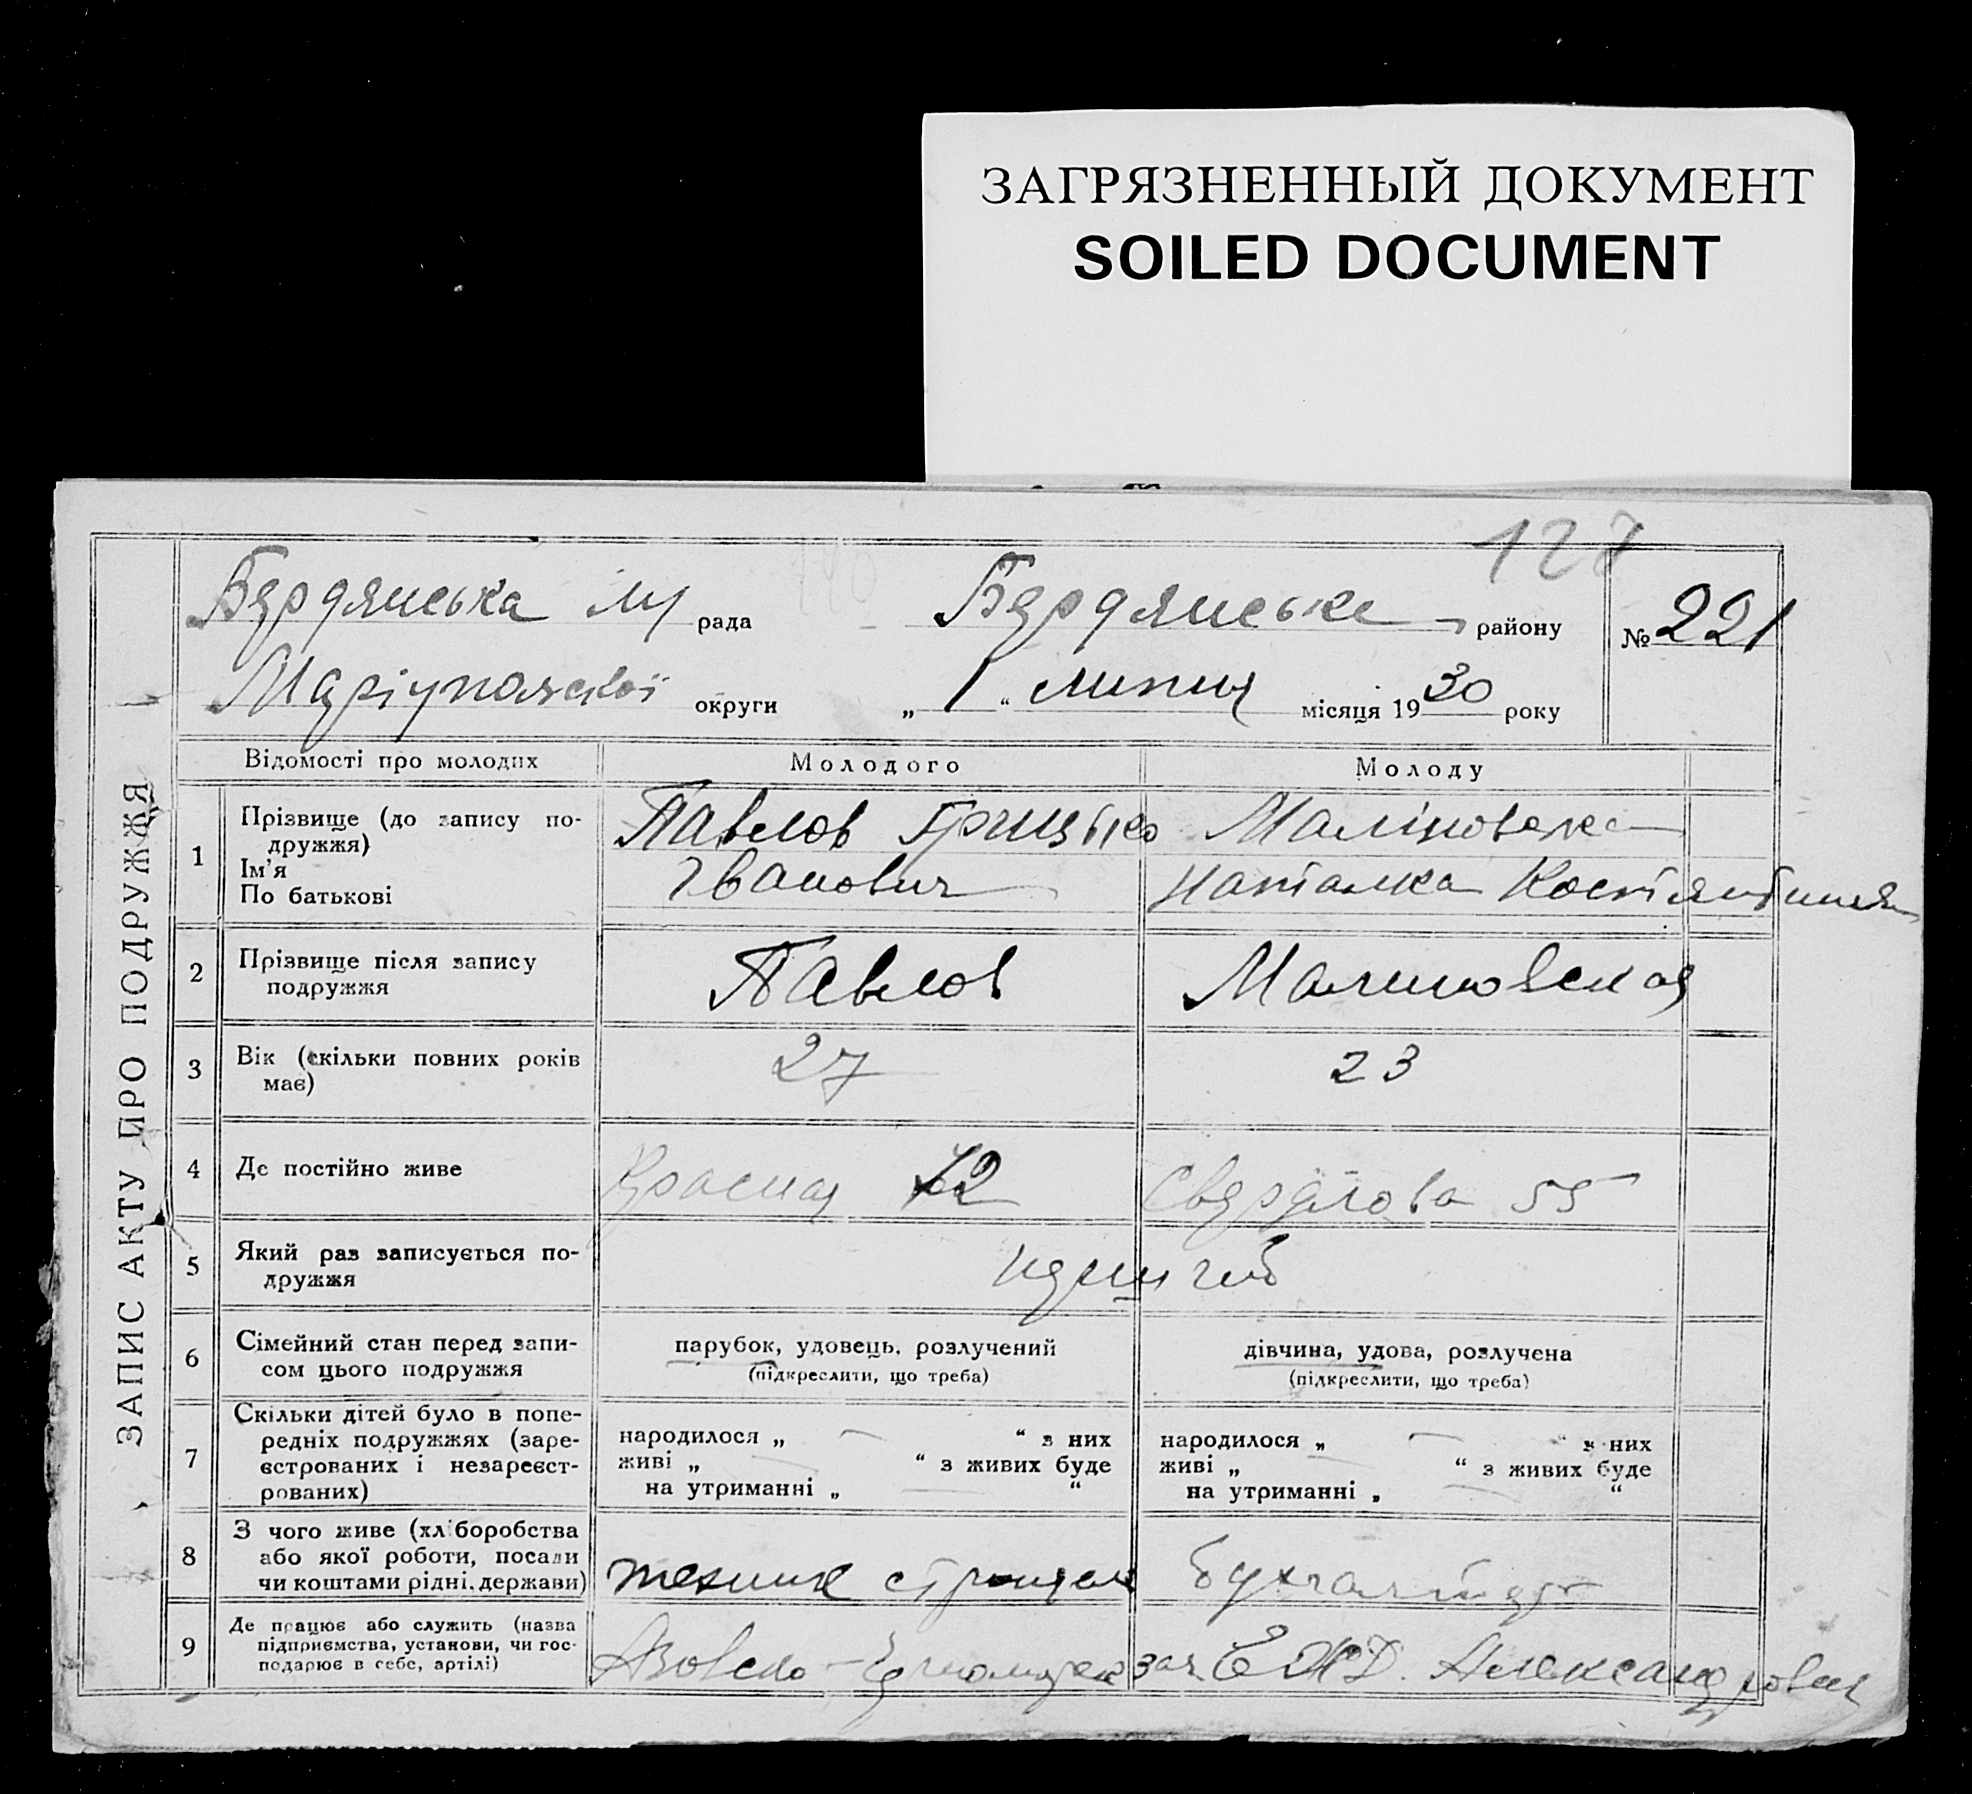 ЗАГРЯЗНЕННЫЙ ДОКУМЕНТ
SOILED DOCUMENT
127
ЗАПИС АКТУ ПРО ПОДРУЖЖЯ
Бердянська м/ рада Бердянське району № 221
Маріупольської округи „ 1 “ липня місяця 1930 року
Відомості про молодих Молодого Молоду
1 Прізвище (до запису по-
дружжя)
Ім'я
По батькові
Павлов Грицько
Іванович
Маліновська
Наталка Костянтинів
2 Прізвище після запису
подружжя
Павлов Малиновская
3 Вік (скільки повних років
має)
27 23
4 Де постійно живе Красная 72 Свердлова 55
5 Який раз записується по-
дружжя
6 Сімейний стан перед запи-
сом цього подружжя
парубок, удовець, розлучений
(підкреслити, що треба)
дівчина, удова, розлучена
(підкреслити, що треба)
7 Скільки дітей було в попе-
редніх подружжях (заре-
єстрованих і незареєст-
рованих)
народилося „ — “ з них
живі „ — “ з живих буде
на утриманні „ — “
народилося „ — “ з них
живі „ — “ з живих буде
на утриманні „ — “
8 З чого живе (хліборобства
або якої роботи, посади
чи коштами рідні, держави)
техник Бухгалтер
9 Де працює або служить (назва
підприємства, установи, чи гос-
подарює в себе, артілі)
Азовско-